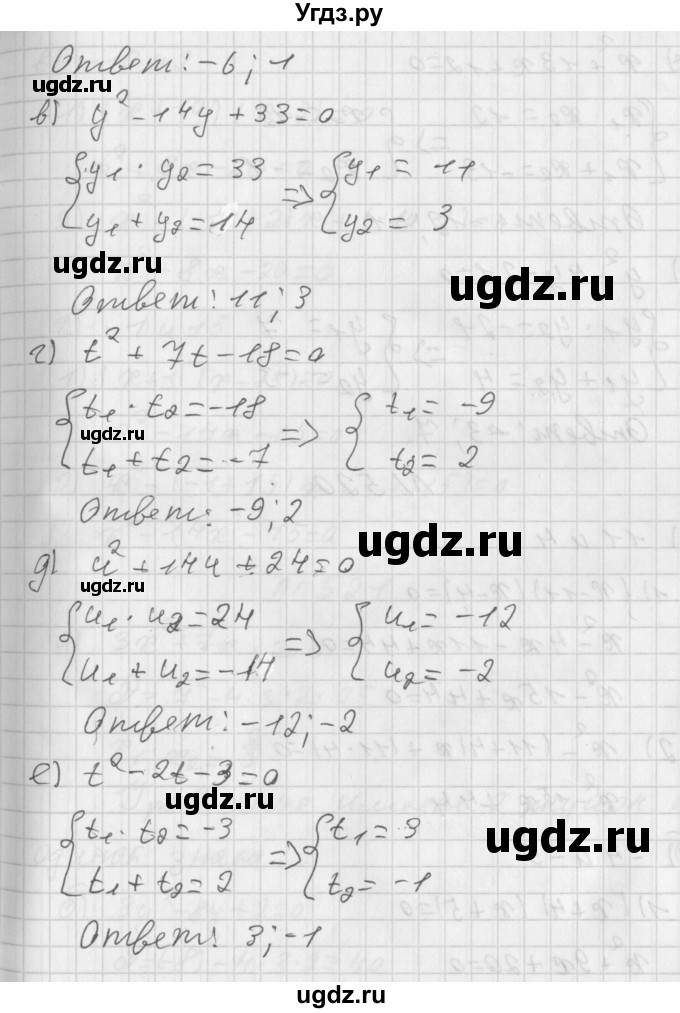 Угдз.ру
Ответ: -6; 1
в) y² - 14y + 33 = 0
{ y1 · y2 = 33
{ y1 + y2 = 14
=> { y1 = 11
{ y2 = 3
ugdz.ru
ugdz.ru
Ответ: 11; 3
г) t² + 7t - 18 = 0
{ t1 · t2 = -18
{ t1 + t2 = -7
=> { t1 = -9
{ t2 = 2
ugdz.ru
Ответ: -9; 2
ugdz.ru
д) u² + 14u + 24 = 0
{ u1 · u2 = 24
{ u1 + u2 = -14
=> { u1 = -12
{ u2 = -2
ugdz.ru
Ответ: -12; -2
е) t² - 2t - 3 = 0
ugdz.ru
{ t1 · t2 = -3
{ t1 + t2 = 2
=> { t1 = 3
{ t2 = -1
ugdz.ru
ugdz.ru
Ответ: 3; -1
ugdz.ru